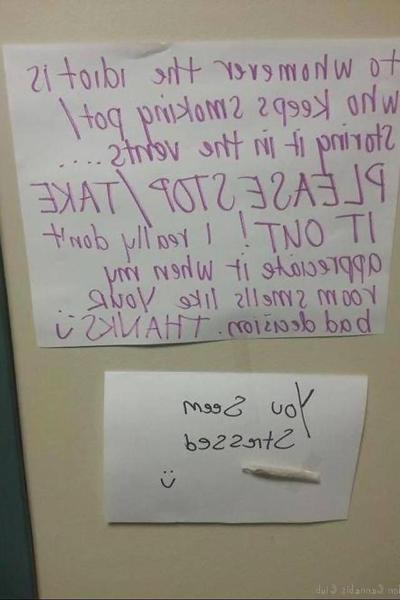 to whomever the idiot is
who keeps smoking pot/
storing it in the vents....
PLEASE STOP/TAKE
IT OUT! I really don't
appreciate it when my
room smells like YOUR
bad decision. THANKS
You Seem
Stressed
Cannabis Club